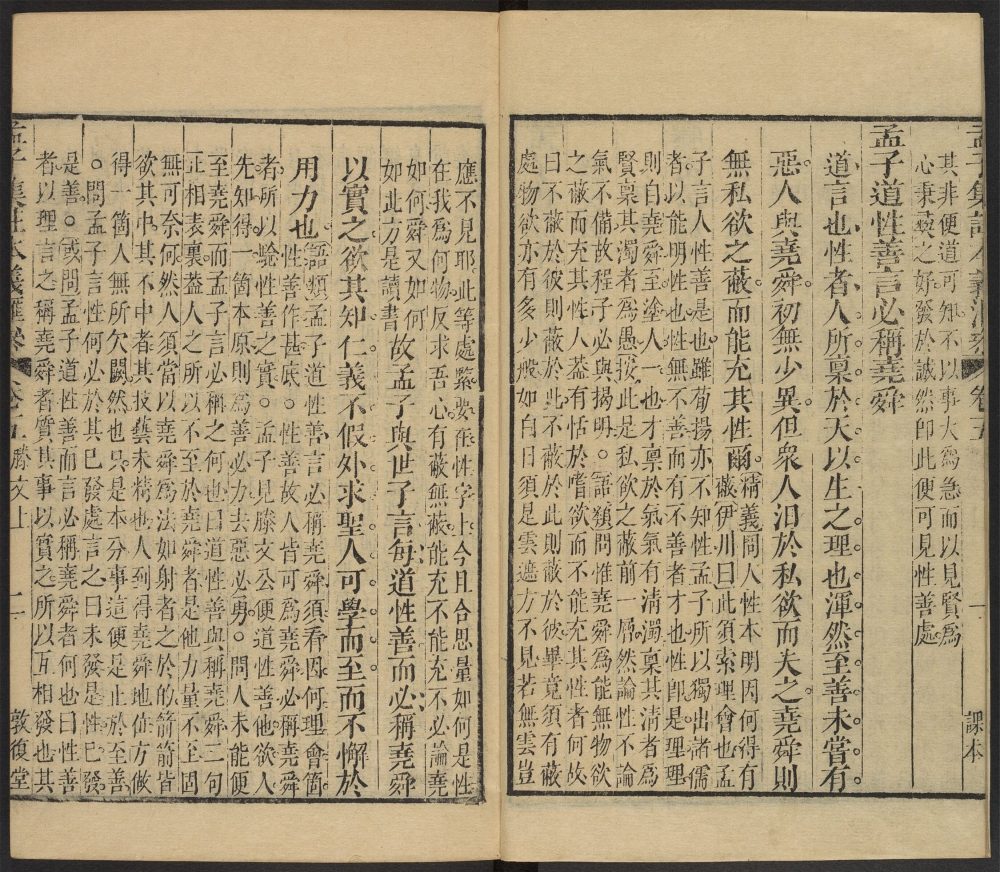 孟子集註本義匯參 卷五 一 課本
其非便道可知不以事大爲急而以見賢爲
心秉彞之好發於誠然卽此便可見性善處
孟子道性善言必稱堯舜
道言也性者人所稟於天以生之理也渾然至善未嘗有
惡人與堯舜初無少異但衆人汨於私欲而失之堯舜則
無私欲之蔽而能充其性爾精義問人性本明因何得有
蔽伊川曰此須索理會也孟
子言人性善是也雖荀揚亦不知性孟子所以獨出諸儒
者以能明性也性無不善而有不善者才也性卽是理理
則自堯舜至塗人一也才稟於氣氣有淸濁稟其淸者爲
賢稟其濁者爲愚按此是私欲之蔽前一層然論性不論
氣不備故程子必與揭明○語類問惟堯舜爲能無物欲
之蔽而充其性人葢有恬於嗜欲而不能充其性者何故
曰不蔽於彼則蔽於此不蔽於此則蔽於彼畢竟須有蔽
處物欲亦有多少般如白日須是雲遮方不見若無雲豈
應不見耶此等處緊要在性字上今且合思量如何是性
在我爲何物反求吾心有蔽無蔽能充不能充不必論堯
如何舜又如何
如此方是讀書故孟子與世子言每道性善而必稱堯舜
以實之欲其知仁義不假外求聖人可學而至而不懈於
用力也語類孟子道性善言必稱堯舜須看因何理會箇
性善作甚底○性善故人皆可爲堯舜必稱堯舜
者所以驗性善之實○孟子見滕文公便道性善他欲人
先知得一箇本原則爲善必力去惡必勇○問人未能便
至堯舜而孟子言必稱之何也曰道性善與稱堯舜二句
正相表裏葢人之所以不至於堯舜者是他力量不至固
無可奈何然人須當以堯舜爲法如射者之於的箭箭皆
欲其中其不中者其技藝未精也人到得堯舜地位方做
得一箇人無所欠闕然也只是本分事這便是止於至善
○問孟子言性何必於其已發處言之曰未發是性已發
是善○或問孟子道性善而言必稱堯舜者何也曰性善
者以理言之稱堯舜者質其事以實之所以互相發也其
孟子集註本義匯參 卷五 滕文上 二 敦復堂